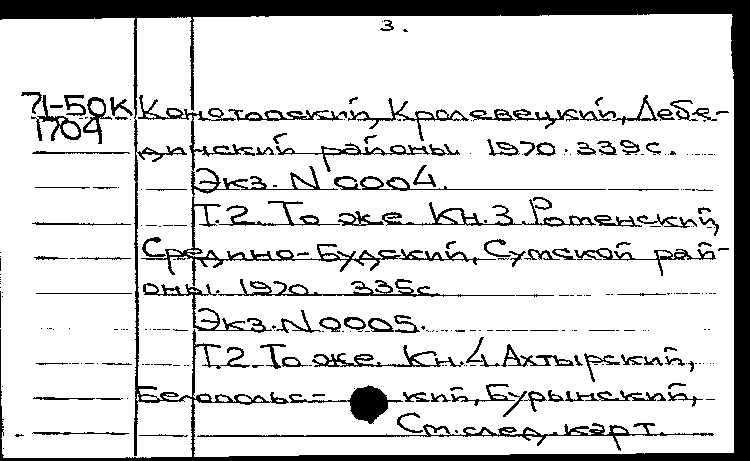 3.
71-50К Конотопский, Кролевецкий, Лебе-
1704 динский районы. 1970. 339с.
Экз. N 0004.
Т.2. То же. Кн.3. Роменский,
Средино-Будский, Сумской рай-
оны. 1970. 335с
Экз. N 0005.
Т.2. То же. Кн.4. Ахтырский,
Белопольс- кий, Бурынский,
См. след. карт.